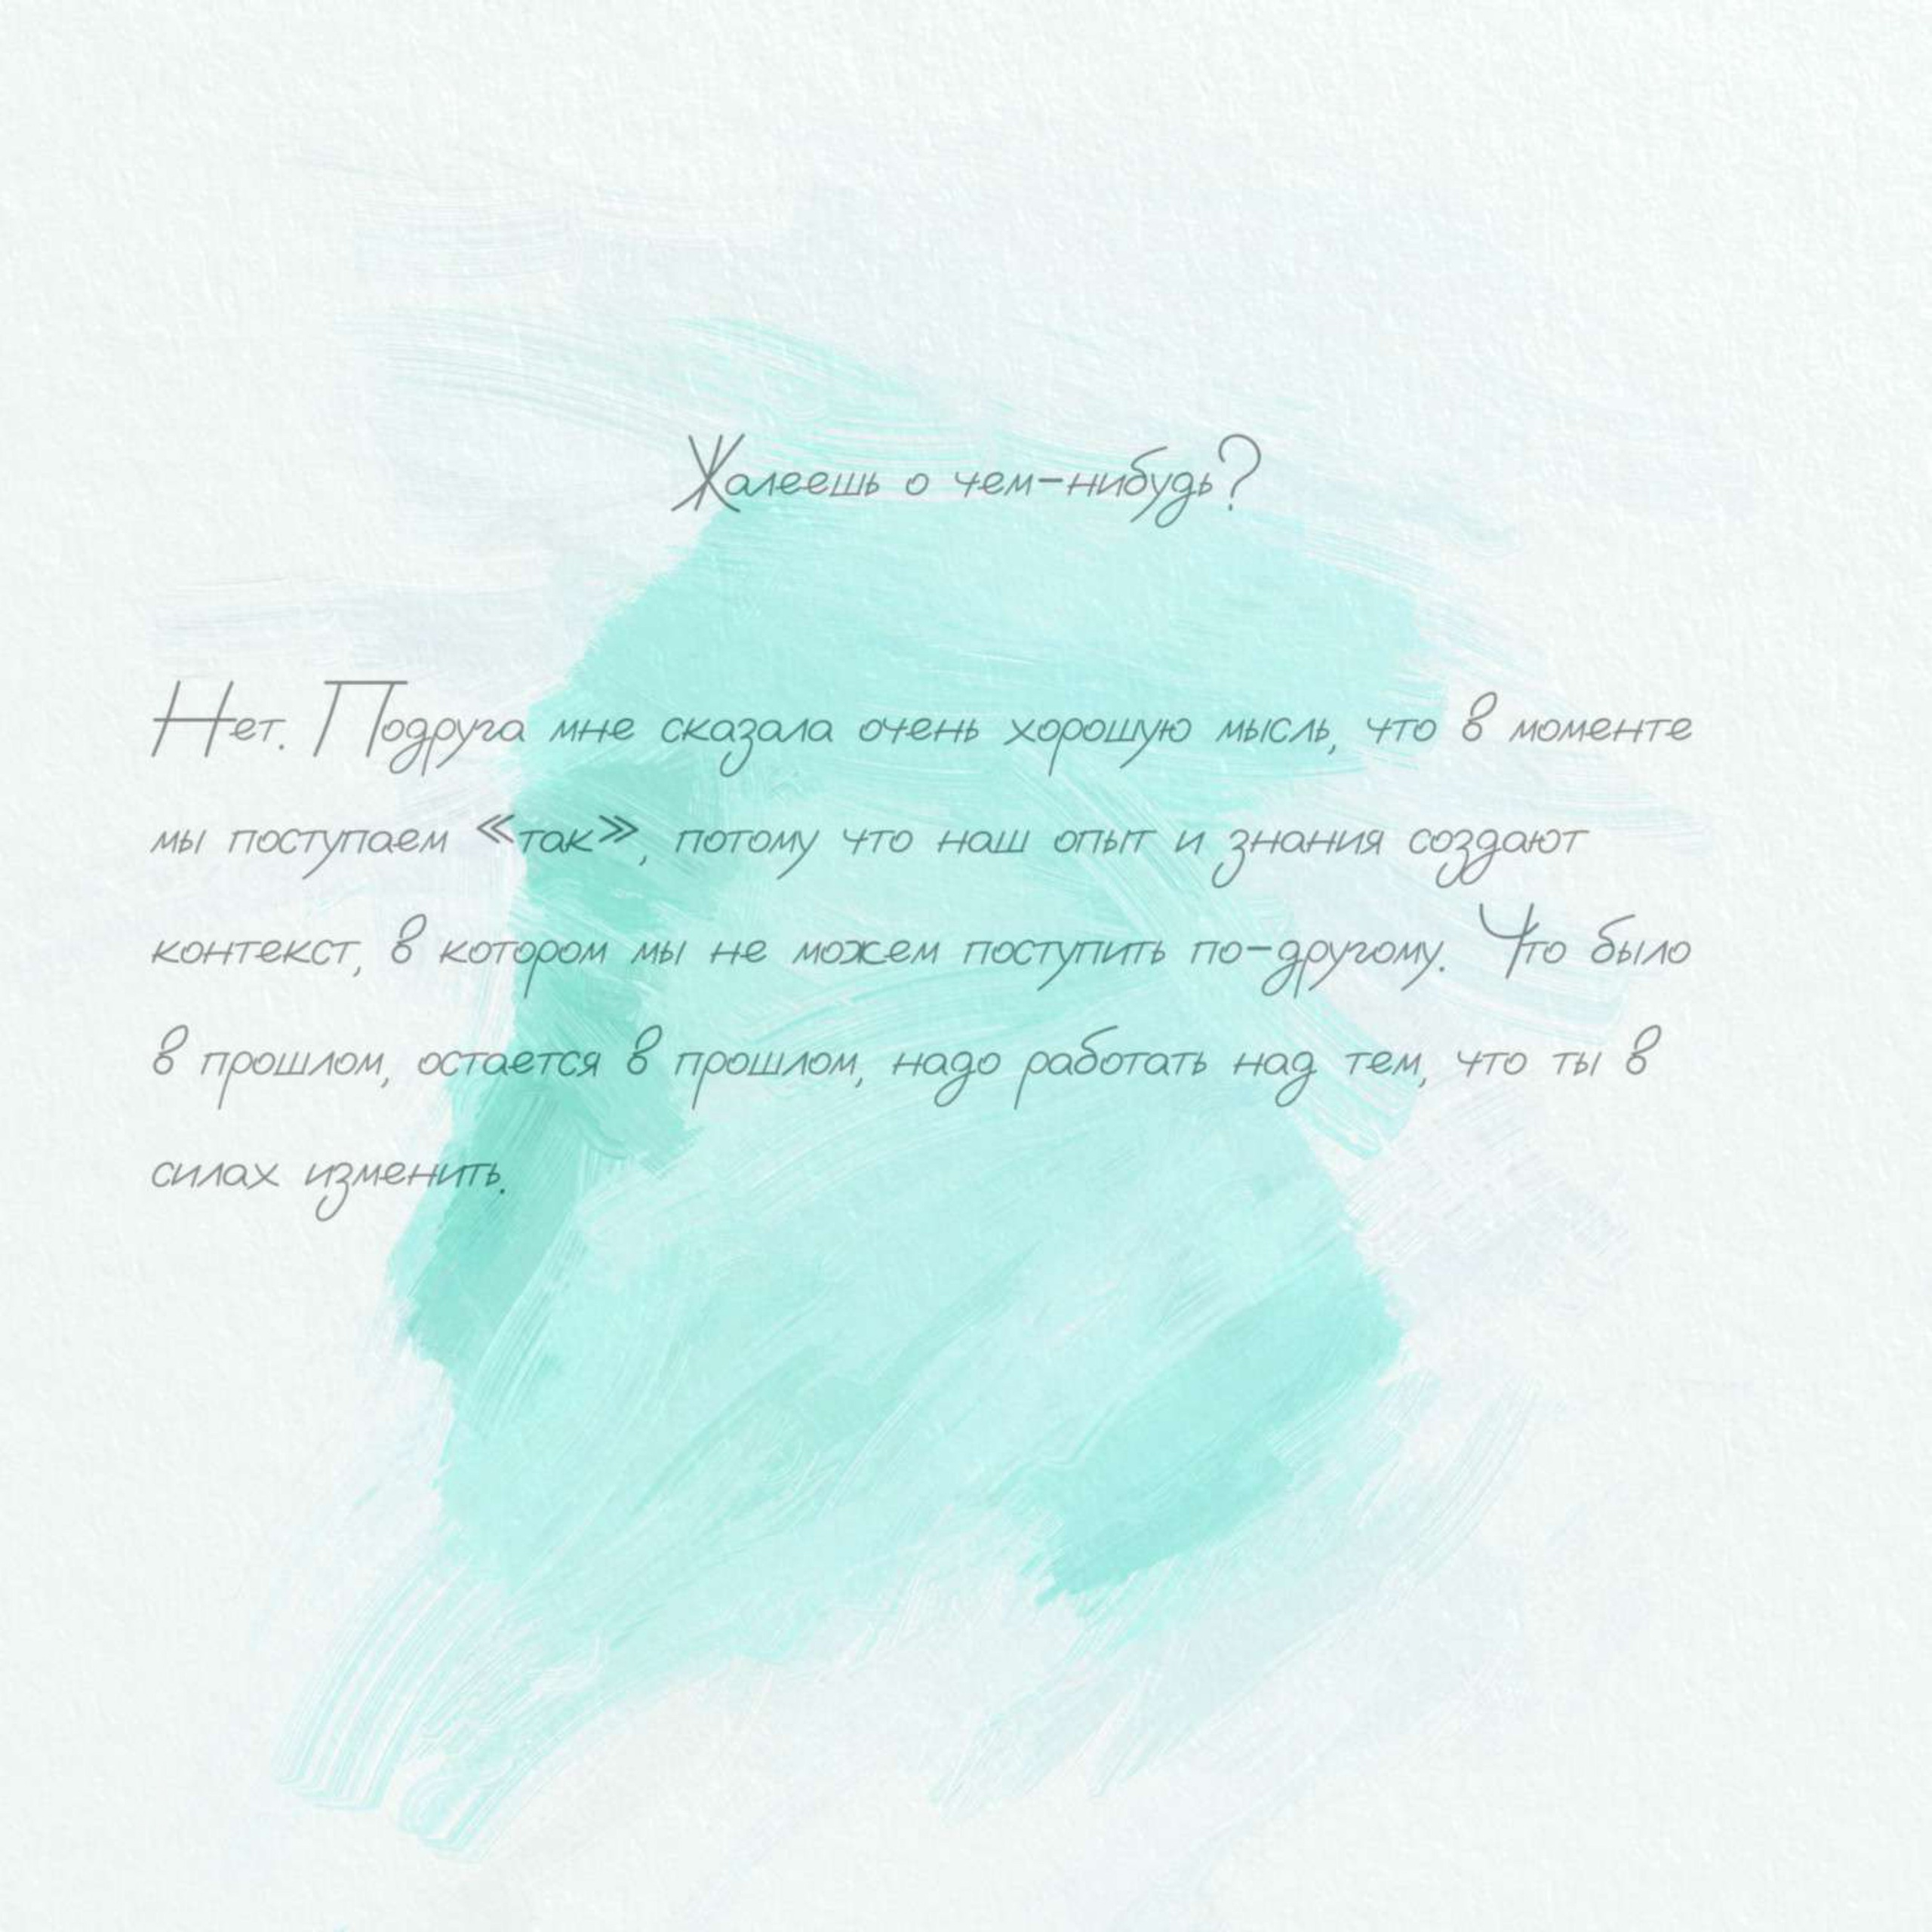 Жалеешь о чем-нибудь?
Нет. Подруга мне сказала очень хорошую мысль, что в моменте
мы поступаем «так», потому что наш опыт и знания создают
контекст, в котором мы не можем поступить по-другому. Что было
в прошлом, остается в прошлом, надо работать над тем, что ты в
силах изменить.